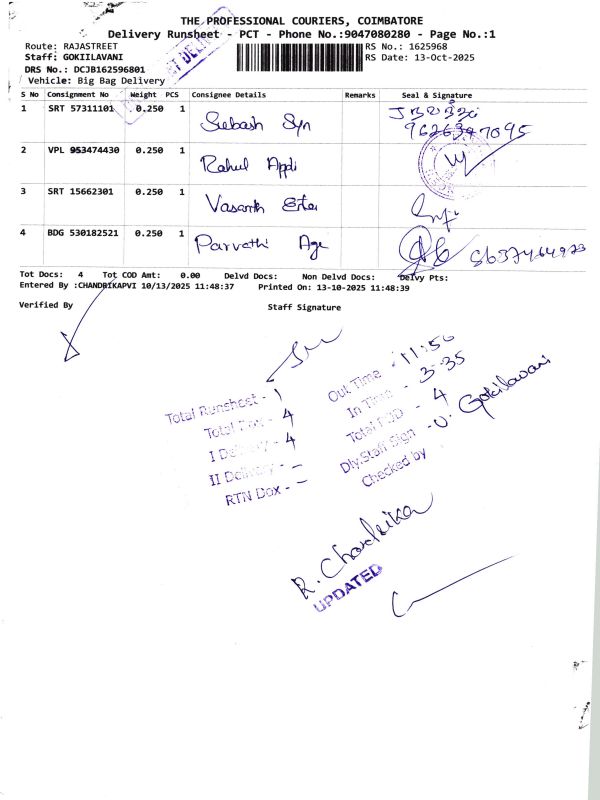 THE PROFESSIONAL COURIERS, COIMBATORE
Delivery Runsheet - PCT - Phone No.:9047080280 - Page No.:1
Route: RAJASTREET
RS No.: 1625968
Staff: GOKIILAVANI
RS Date: 13-Oct-2025
DRS No.: DCJB162596801
Vehicle: Big Bag Delivery
S No Consignment No Weight PCS Consignee Details Remarks Seal & Signature
1 SRT 57311101 0.250 1 Subash Syn
2 VPL 953474430 0.250 1 Rahul Appli
3 SRT 15662301 0.250 1 Vasanth
4 BDG 530182521 0.250 1 Parvathi Age
Tot Docs: 4 Tot COD Amt: 0.00 Delvd Docs: Non Delvd Docs: Delvy Pts:
Entered By :CHANDRIKAPVI 10/13/2025 11:48:37 Printed On: 13-10-2025 11:48:39
Verified By Staff Signature
Total Runsheet - 1
4
I Delivery - 4
II Delivery - -
RTN Dox - -
Out Time - 11:50
In Time - 3-35
Total POD - 4
Dly.Staff Sign - U. Gokilavani
Checked by
R. Chandrika
UPDATED